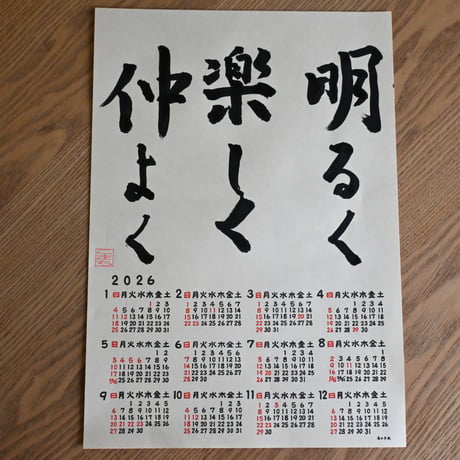 明るく
楽しく
仲よく
2026
1 日月火水木金土
1 2 3
4 5 6 7 8 9 10
11 12 13 14 15 16 17
18 19 20 21 22 23 24
25 26 27 28 29 30 31
2 日月火水木金土
1 2 3 4 5 6 7
8 9 10 11 12 13 14
15 16 17 18 19 20 21
22 23 24 25 26 27 28
3 日月火水木金土
1 2 3 4 5 6 7
8 9 10 11 12 13 14
15 16 17 18 19 20 21
22 23 24 25 26 27 28
29 30 31
4 日月火水木金土
1 2 3 4
5 6 7 8 9 10 11
12 13 14 15 16 17 18
19 20 21 22 23 24 25
26 27 28 29 30
5 日月火水木金土
1 2
3 4 5 6 7 8 9
10 11 12 13 14 15 16
17 18 19 20 21 22 23
24/31 25 26 27 28 29 30
6 日月火水木金土
1 2 3 4 5 6
7 8 9 10 11 12 13
14 15 16 17 18 19 20
21 22 23 24 25 26 27
28 29 30
7 日月火水木金土
1 2 3 4
5 6 7 8 9 10 11
12 13 14 15 16 17 18
19 20 21 22 23 24 25
26 27 28 29 30 31
8 日月火水木金土
1
2 3 4 5 6 7 8
9 10 11 12 13 14 15
16 17 18 19 20 21 22
23/30 24/31 25 26 27 28 29
9 日月火水木金土
1 2 3 4 5
6 7 8 9 10 11 12
13 14 15 16 17 18 19
20 21 22 23 24 25 26
27 28 29 30
10 日月火水木金土
1 2 3
4 5 6 7 8 9 10
11 12 13 14 15 16 17
18 19 20 21 22 23 24
25 26 27 28 29 30 31
11 日月火水木金土
1 2 3 4 5 6 7
8 9 10 11 12 13 14
15 16 17 18 19 20 21
22 23 24 25 26 27 28
29 30
12 日月火水木金土
1 2 3 4 5
6 7 8 9 10 11 12
13 14 15 16 17 18 19
20 21 22 23 24 25 26
27 28 29 30 31